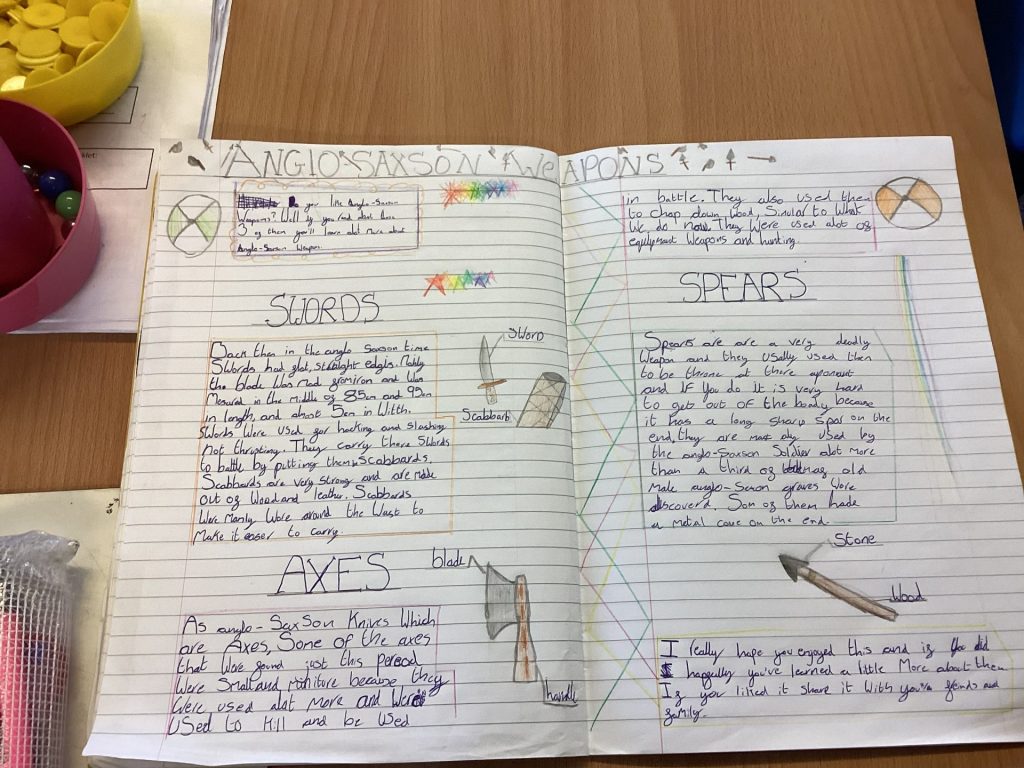 ANGLO-SAXSON WEAPONS
Do you like Anglo-Saxson
Weapons? Well if you read about these
3 of them you'll learn alot more about
Anglo-Saxson Weapon.
SWORDS
Back then in the anglo saxson time
Swords had flat, straight edgIs. Mainly
the blade was mad fromiron and was
Mesured in the middle of 85cm and 95cm
in length, and almost 5cm in witth.
Swords were used for hacking and slashing
not thrusting. They carry there Swords
to battle by putting them in scabbards.
Scabbards are very strong and are made
out of wood and leather. Scabbards
were manly wore around the wast to
make it easer to carry.
SWORD
Scabbard
AXES
As anglo-Saxson Knives Which
are Axes, Some of the axes
that were found just this period
were small and miniture because they
were used alot more and were
used to kill and be used
blade
handle
in battle. They also used them
to chop down wood, Simular to what
we do now. They were used alot of
equipment weapons and hunting.
SPEARS
Spears are are a very deadly
weapon and they usally used them
to be throne at there oponant
and if you do it is very hard
to get out of the boady because
it has a long sharp spar on the
end, they are used by
the anglo-Saxson Soldier alot more
than a third of old
male anglo-Saxon graves were
discoverd. Som of them hade
a metal cone on the end.
Stone
Wood
I really hope you enjoyed this and if you did
hapefully you've learned a little more about them
If you liked it share it with you're frends and
family.